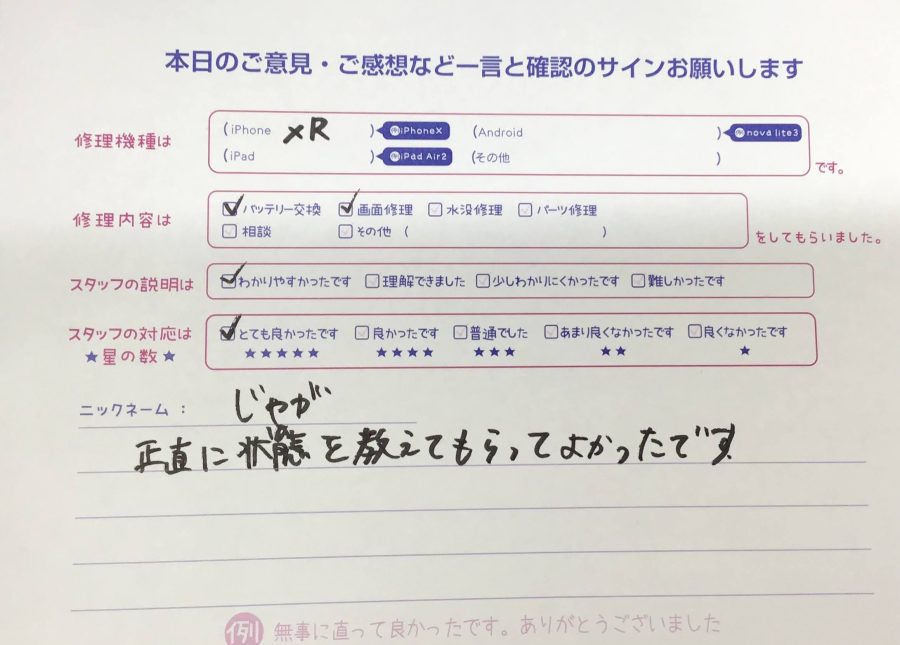 本日のご意見・ご感想など一言と確認のサインお願いします
修理機種は
(iPhone XR ) 例iPhoneX (Android ) 例nova lite3
(iPad ) 例iPad Air2 (その他 )
です。
修理内容は
バッテリー交換 画面修理 水没修理 パーツ修理
相談 その他 ( )
をしてもらいました。
スタッフの説明は
わかりやすかったです 理解できました 少しわかりにくかったです 難しかったです
スタッフの対応は
★星の数★
とても良かったです 良かったです 普通でした あまり良くなかったです 良くなかったです
★★★★★ ★★★★ ★★★ ★★ ★
ニックネーム： じゃが
正直に状態を教えてもらってよかったです
例 無事に直って良かったです。ありがとうございました